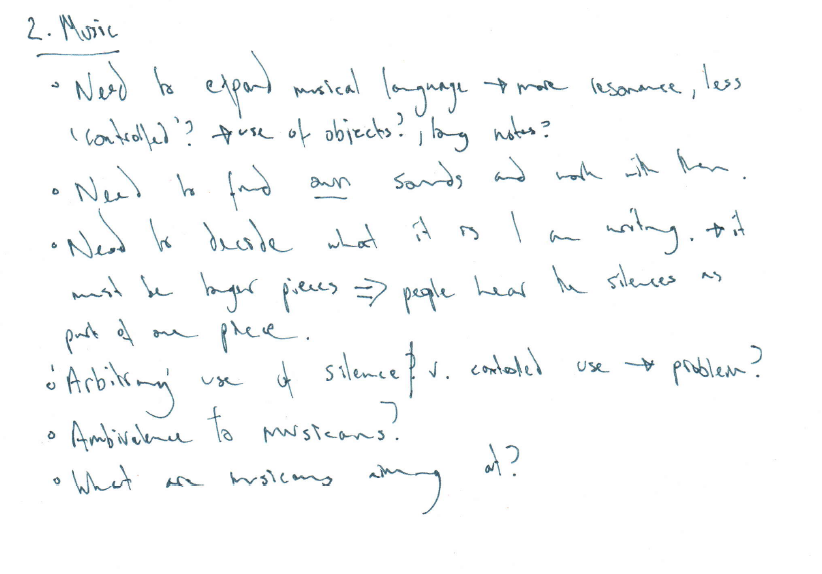 2. Music
• Need to expand musical language → more resonance, less
'controlled'? → use of objects?, long notes?
• Need to find own sounds and work with them.
• Need to decide what it is I am writing. → it
must be longer pieces ⇒ people hear the silences as
part of one piece.
• 'Arbitrary' use of silence? v. controlled use → problem?
• Ambivalence to musicians?
• What are musicians aiming at?